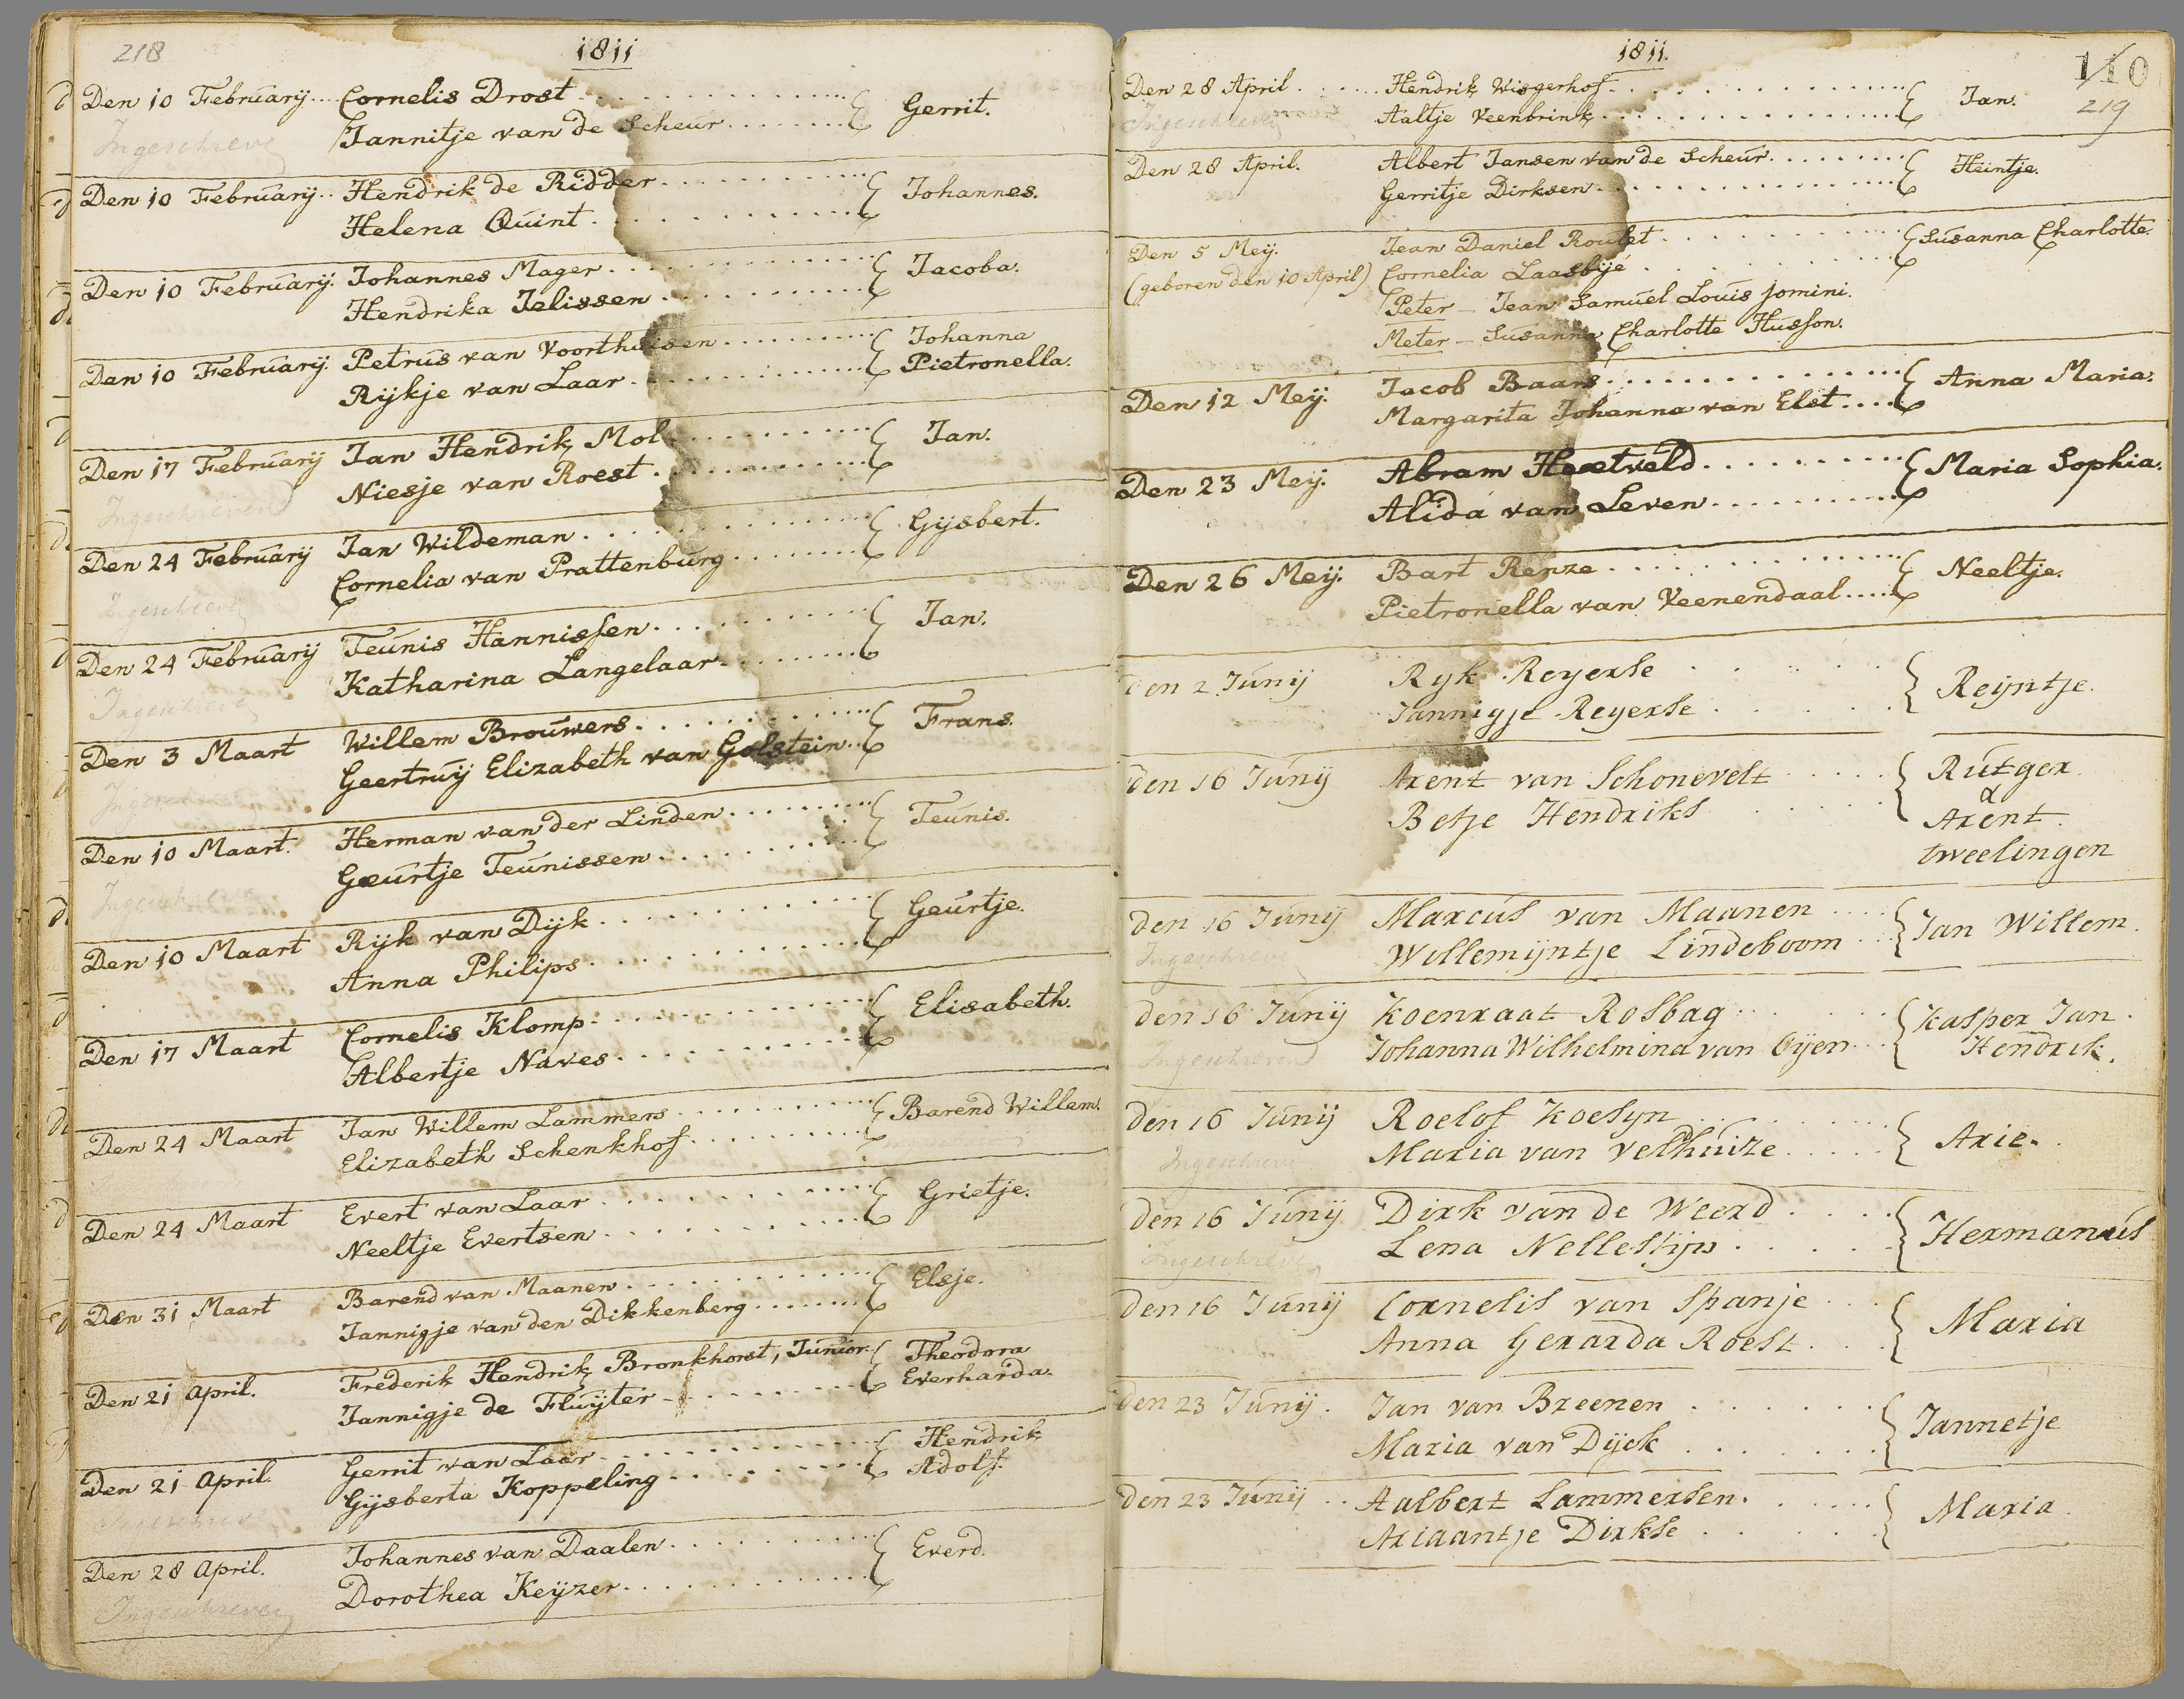 218
1811
Den 10 February.... Cornelis Drost
Ingeschreve Jannitje van de Scheur
Gerrit.
Den 10 February.. Hendrik de Ridder
Helena Quint
Johannes.
Den 10 February. Johannes Mager
Hendrika Jelissen
Jacoba.
Den 10 February. Petrus van Voorthuisen
Rijkje van Laar
Johanna
Pietronella.
Den 17 February Jan Hendrik Mol
Niesje van Roest
Jan.
Ingeschreven
Den 24 February Jan Wildeman
Cornelia van Prattenburg
Gijsbert.
Ingeschreve
Den 24 February Teunis Hannissen
Katharina Langelaar
Jan.
Ingeschreve
Den 3 Maart Willem Brouwers
Geertruij Elizabeth van Golstein
Frans.
Den 10 Maart. Herman van der Linden
Geurtje Teunissen
Teunis.
Ingeschreve
Den 10 Maart Rijk van Dijk
Anna Philips
Geurtje.
Den 17 Maart Cornelis Klomp
Albertje Naves
Elisabeth.
Den 24 Maart Jan Willem Lammers
Elizabeth Schenkhof
Barend Willem.
Den 24 Maart Evert van Laar
Neeltje Evertsen
Grietje.
Den 31 Maart Barend van Maanen
Jannigje van den Dikkenberg
Elsje.
Den 21 April. Frederik Hendrik Bronkhorst, Junior
Jannigje de Fluyter
Theodora
Everharda.
Den 21 April. Gerrit van Laar
Gijsberta Koppeling
Hendrik
Adolf.
Den 28 April. Johannes van Daalen
Dorothea Keijzer
Everd.
Ingeschreven
1811.
110
219
Den 28 April Hendrik Wisgerhof
Ingeschreven Aaltje Veenbrink
Jan.
Den 28 April. Albert Jansen van de Scheur
Gerritje Dirksen
Heintje.
Den 5 Meij. Jean Daniel Roulet
(geboren den 10 April) Cornelia Laasbijé
Susanna Charlotte.
Peter - Jean Samuel Louis Jomini.
Meter - Susanna Charlotte Husson.
Den 12 Meij. Jacob Baars
Margarita Johanna van Elst
Anna Maria.
Den 23 Meij. Abram
Alida van Leven
Maria Sophia.
Den 26 Meij. Bart Renze
Pietronella van Veenendaal
Neeltje.
Den 2 Junij Ryk Reyerse
Jannigje Reyerse
Reijntje.
den 16 Junij Arent van Schonevelt
Betje Hendriks
Rutger
&
Arent
tweelingen
den 16 Junij Marcus van Maanen
Willemijntje Lindeboom
Jan Willem.
Ingeschreve
den 16 Junij Koenraat Rosbag
Johanna Wilhelmina van Oijen
Kasper Jan
Hendrik.
Ingeschreven
den 16 Junij Roelof Koesyn
Maria van Velthuize
Arie.
Ingeschreve
den 16 Junij Dirk van de Weerd
Lena Nellestijn
Hermanus
Ingeschreve
den 16 Junij Cornelis van Spanje
Anna Gerarda Roest
Maria
den 23 Junij. Jan van Breenen
Maria van Dijck
Jannetje
den 23 Junij Aalbert Lammersen
Ariaantje Dirkse
Maria